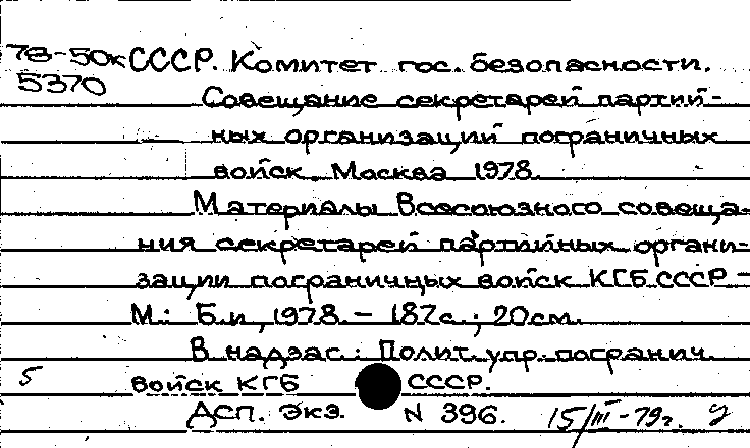 78-50к СССР. Комитет гос. безопасности.
5370
Совещание секретарей партий-
ных организаций пограничных
войск. Москва 1978.
Материалы Всесоюзного совеща-
ния секретарей партийных органи-
зации пограничных войск КГБ СССР -
М.: Б.и, 1978. - 187с.; 20см.
В надзаг.: Полит. упр. погранич.
5 войск КГБ СССР.
Дсп. Экз. N 396. 15/III-79г.